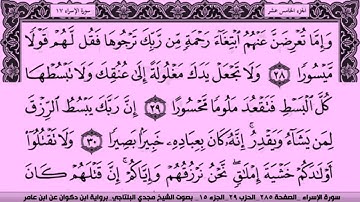 الجزء الخامس عشر سورة الإسراء ١٧
وَإِمَّا تُعْرِضَنَّ عَنْهُمُ ابْتِغَاءَ رَحْمَةٍ مِّن رَّبِّكَ تَرْجُوهَا فَقُل لَّهُمْ قَوْلًا
مَّيْسُورًا ٢٨ وَلَا تَجْعَلْ يَدَكَ مَغْلُولَةً إِلَىٰ عُنُقِكَ وَلَا تَبْسُطْهَا
كُلَّ الْبَسْطِ فَتَقْعُدَ مَلُومًا مَّحْسُورًا ٢٩ إِنَّ رَبَّكَ يَبْسُطُ الرِّزْقَ
لِمَن يَشَاءُ وَيَقْدِرُ إِنَّهُ كَانَ بِعِبَادِهِ خَبِيرًا بَصِيرًا ٣٠ وَلَا تَقْتُلُوا
أَوْلَادَكُمْ خَشْيَةَ إِمْلَاقٍ نَّحْنُ نَرْزُقُهُمْ وَإِيَّاكُمْ إِنَّ قَتْلَهُمْ كَانَ
سورة الإسراء _ الصفحة ٢٨٥ الحزب ٢٩ الجزء ١٥ بصوت الشيخ مجدي البلتاجي برواية ابن ذكوان عن ابن عامر